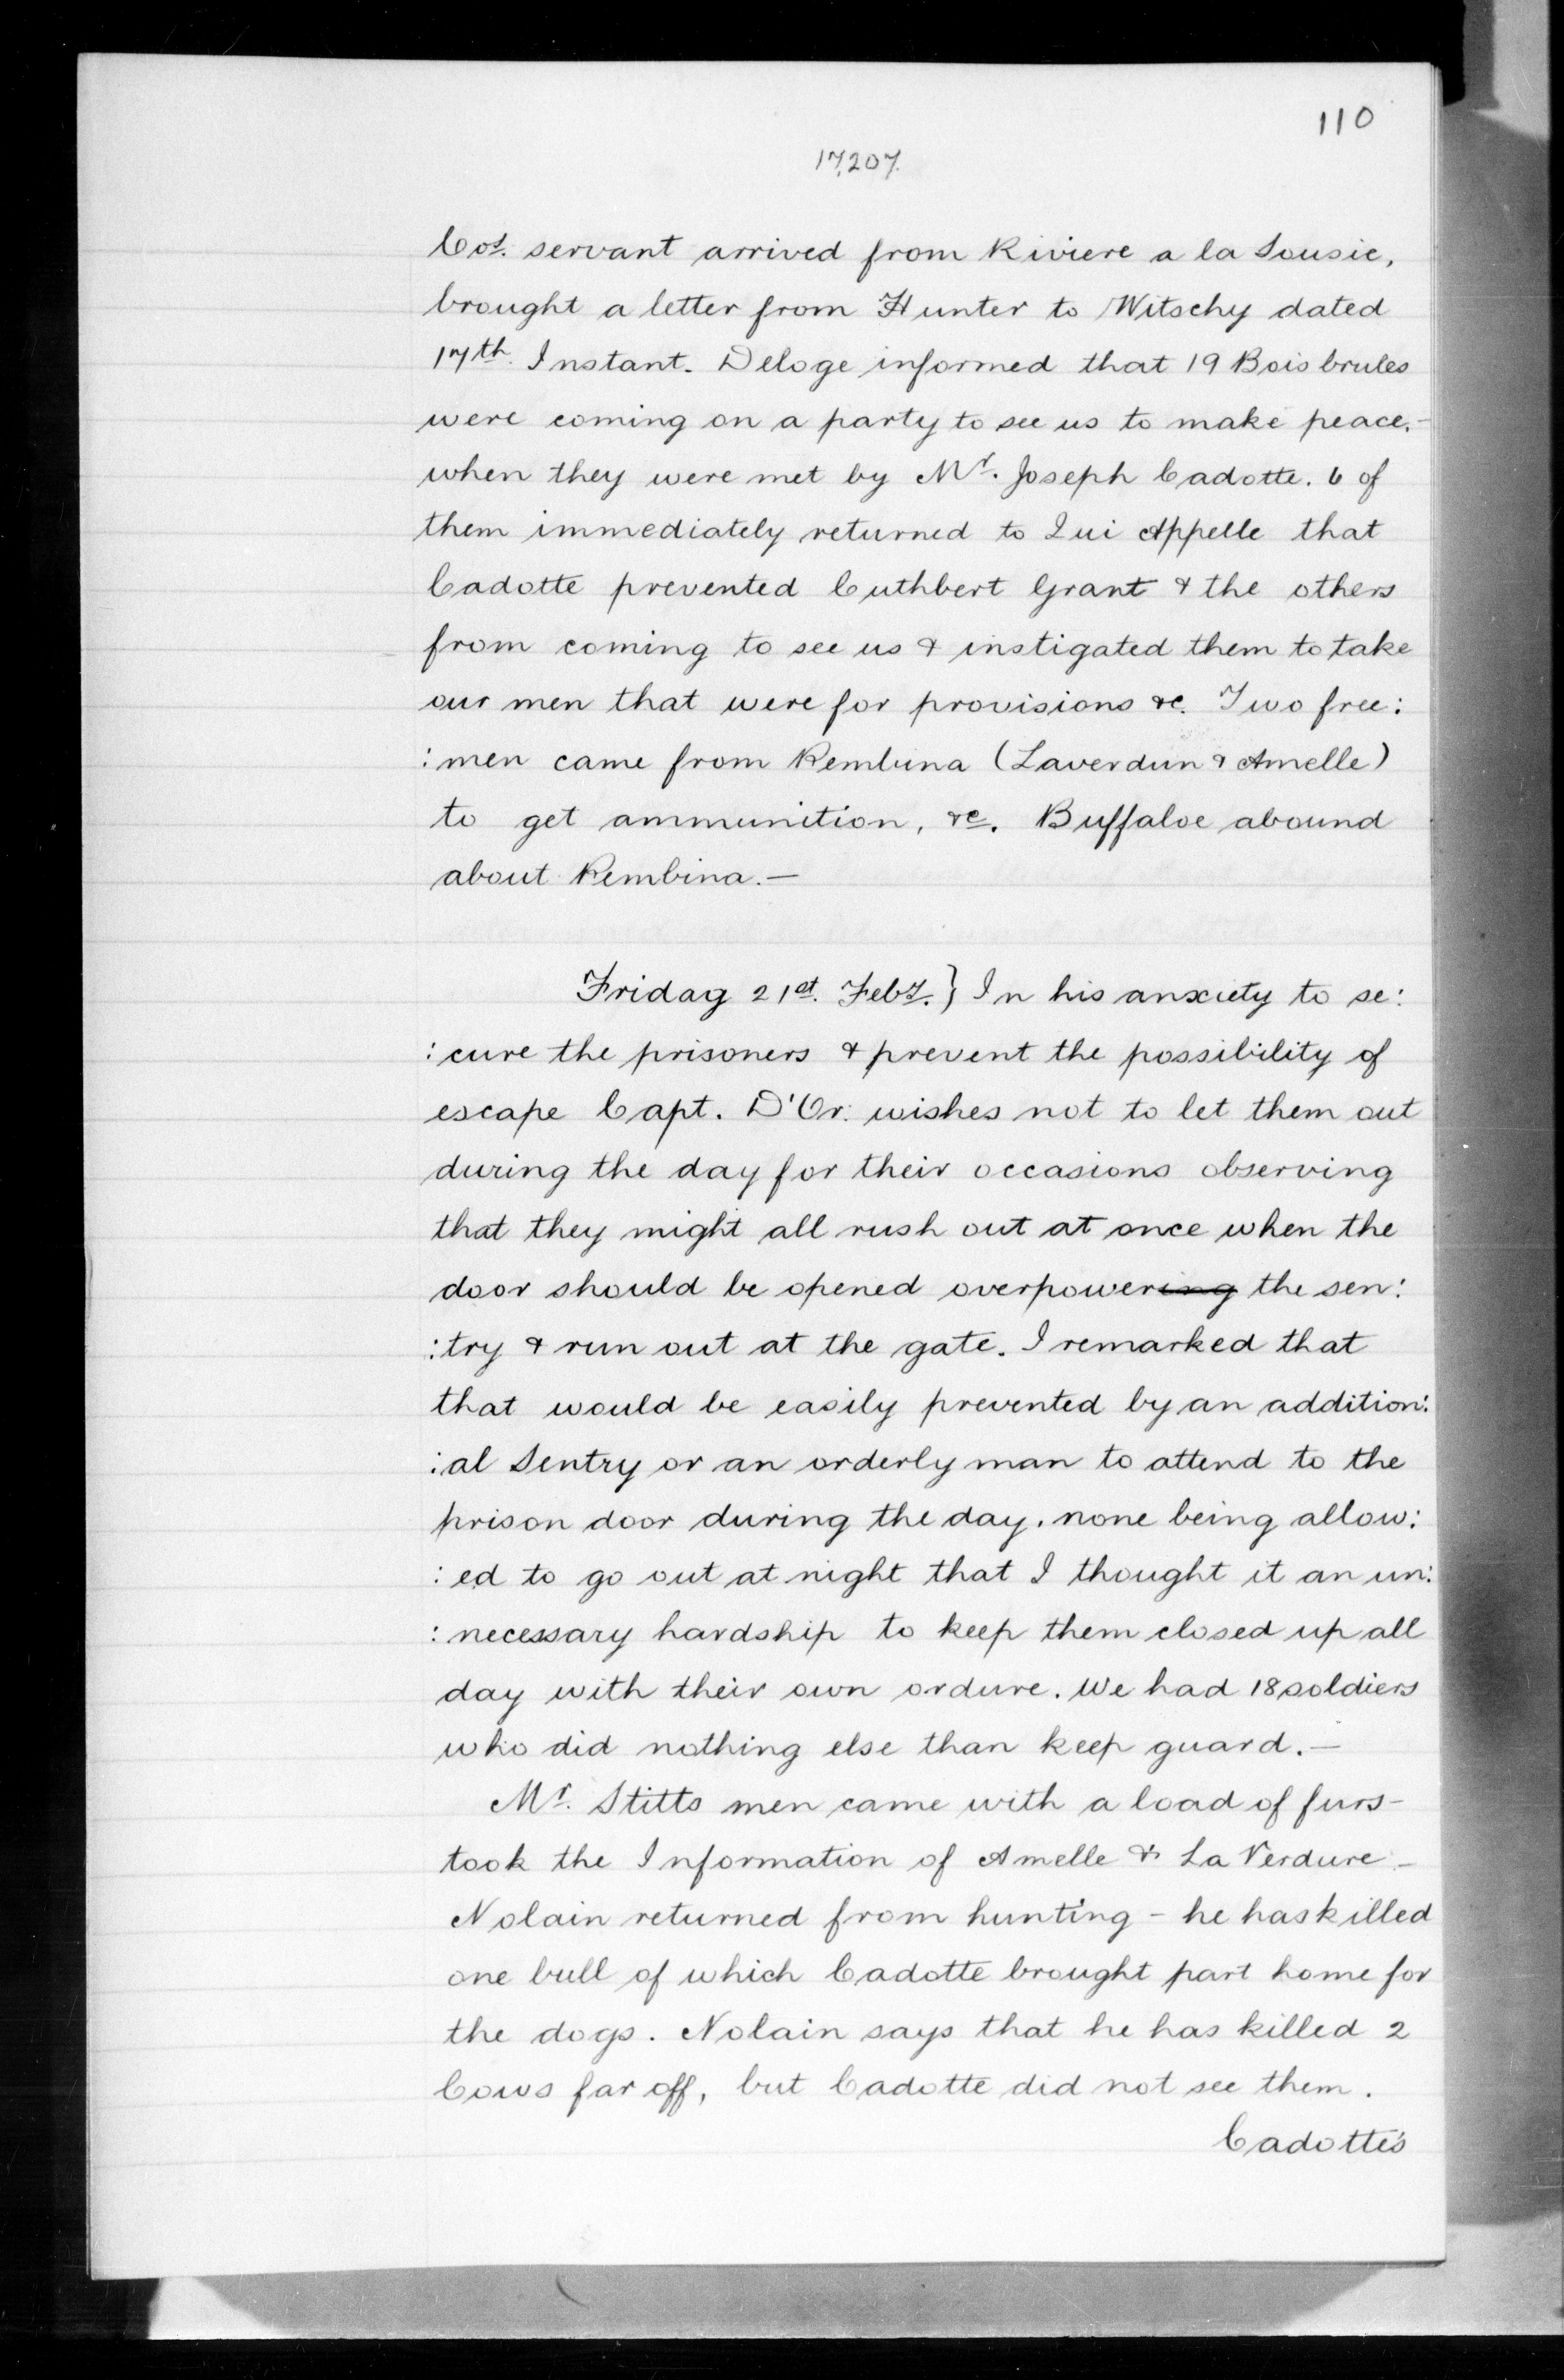 110
17,207.
Cos. servant arrived from Riviere a la Sousie,
brought a letter from Hunter to Witschy dated
17th. Instant. Deloge informed that 19 Bois brules
were coming on a party to see us to make peace.-
when they were met by Mr. Joseph Cadotte. 6 of
them immediately returned to Qui Appelle that
Cadotte prevented Cuthbert Grant & the others
from coming to see us & instigated them to take
our men that were for provisions &c. Two free:
:men came from Pembina (Laverdun & Amelle)
to get ammunition, &c. Buffaloe abound
about Pembina.—
Friday 21st. Feby.} In his anxiety to se:
:cure the prisoners & prevent the possibility of
escape Capt. D'Or: wishes not to let them out
during the day for their occasions observing
that they might all rush out at once when the
door should be opened overpowering the sen:
:try & run out at the gate. I remarked that
that would be easily prevented by an addition:
:al Sentry or an orderly man to attend to the
prison door during the day, none being allow:
:ed to go out at night that I thought it an un:
:necessary hardship to keep them closed up all
day with their own ordure. We had 18 soldiers
who did nothing else than keep guard.—
Mr. Stitts men came with a load of furs-
took the Information of Amelle & La Verdure-
Nolain returned from hunting - he has killed
one bull of which Cadotte brought part home for
the dogs. Nolain says that he has killed 2
Cows far off, but Cadotte did not see them.
Cadotte's